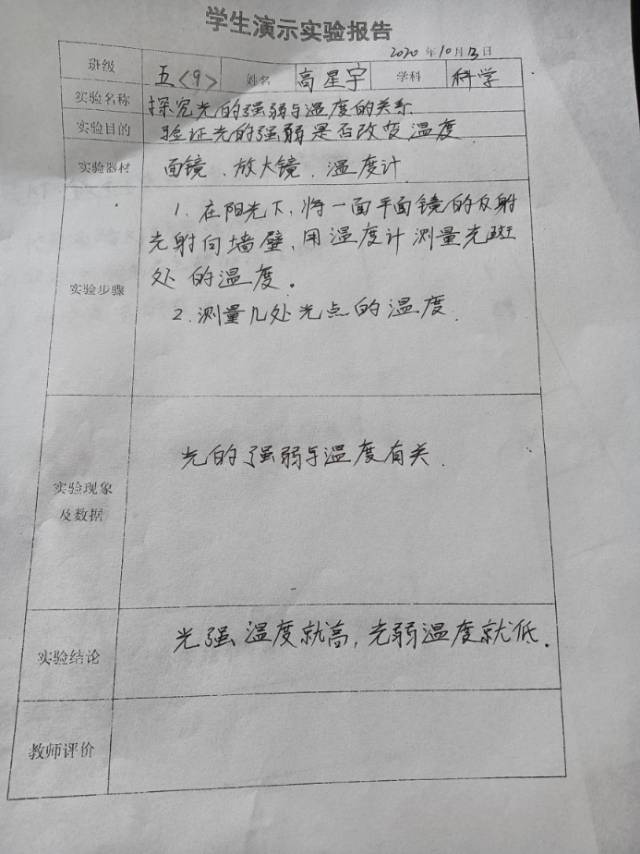 学生演示实验报告
2020年10月13日
班级 五<9> 姓名 高星宇 学科 科学
实验名称 探究光的强弱与温度的关系
实验目的 验证光的强弱是否改变温度
实验器材 面镜、放大镜、温度计
实验步骤
1. 在阳光下,将一面平面镜的反射
光射向墙壁,用温度计测量光斑
处的温度。
2. 测量几处光点的温度.
实验现象
及数据
光的强弱与温度有关.
实验结论 光强温度就高,光弱温度就低.
教师评价